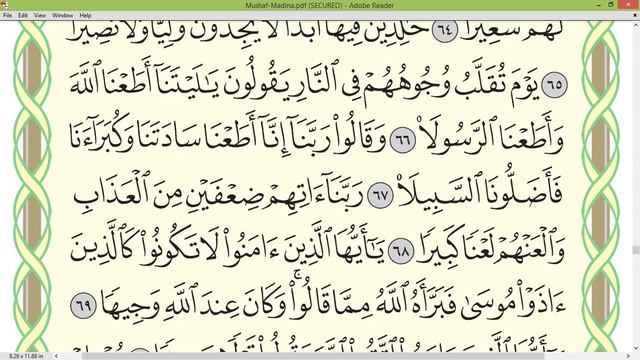 Mushaf-Madina.pdf (SECURED) - Adobe Reader
File Edit View Window Help
لَهُمْ سَعِيرًا ٦٤ خَٰلِدِينَ فِيهَآ أَبَدًا لَّا يَجِدُونَ وَلِيًّا وَلَا نَصِيرًا
٦٥ يَوْمَ تُقَلَّبُ وُجُوهُهُمْ فِى ٱلنَّارِ يَقُولُونَ يَٰلَيْتَنَآ أَطَعْنَا ٱللَّهَ
وَأَطَعْنَا ٱلرَّسُولَا۠ ٦٦ وَقَالُوا۟ رَبَّنَآ إِنَّآ أَطَعْنَا سَادَتَنَا وَكُبَرَآءَنَا
فَأَضَلُّونَا ٱلسَّبِيلَا۠ ٦٧ رَبَّنَآ ءَاتِهِمْ ضِعْفَيْنِ مِنَ ٱلْعَذَابِ
وَٱلْعَنْهُمْ لَعْنًا كَبِيرًا ٦٨ يَٰٓأَيُّهَا ٱلَّذِينَ ءَامَنُوا۟ لَا تَكُونُوا۟ كَٱلَّذِينَ
ءَاذَوْا۟ مُوسَىٰ فَبَرَّأَهُ ٱللَّهُ مِمَّا قَالُوا۟ ۚ وَكَانَ عِندَ ٱللَّهِ وَجِيهًا ٦٩
8.26 x 11.68 in